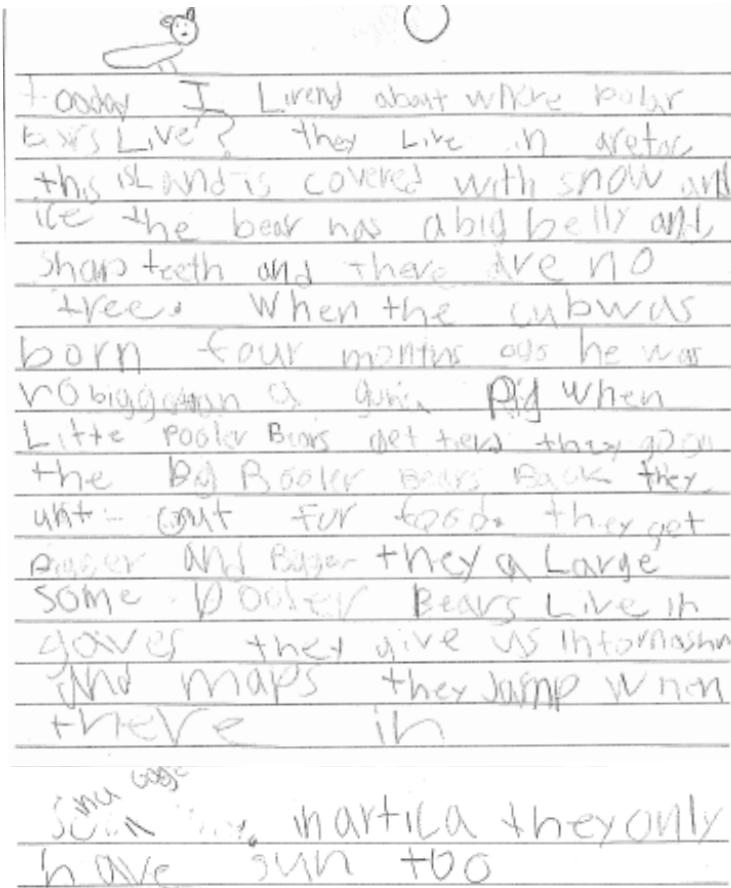 tooday I Lirend about where polar
bears Live? they Live in aretac
this island is covered with snow and
ice the bear has a big belly and
sharp teeth and there are no
tree. When the cub was
born four months ago he was
no bigger than a pig when
Litte pooler Bears get they go on
the Big Booler Bears Back they
for food. they get
Bigger and Bigger they a Large
some pooler Bears Live in
gaves they give us infornashn
and maps they Jamp when
there in
in artica they only
have sun too